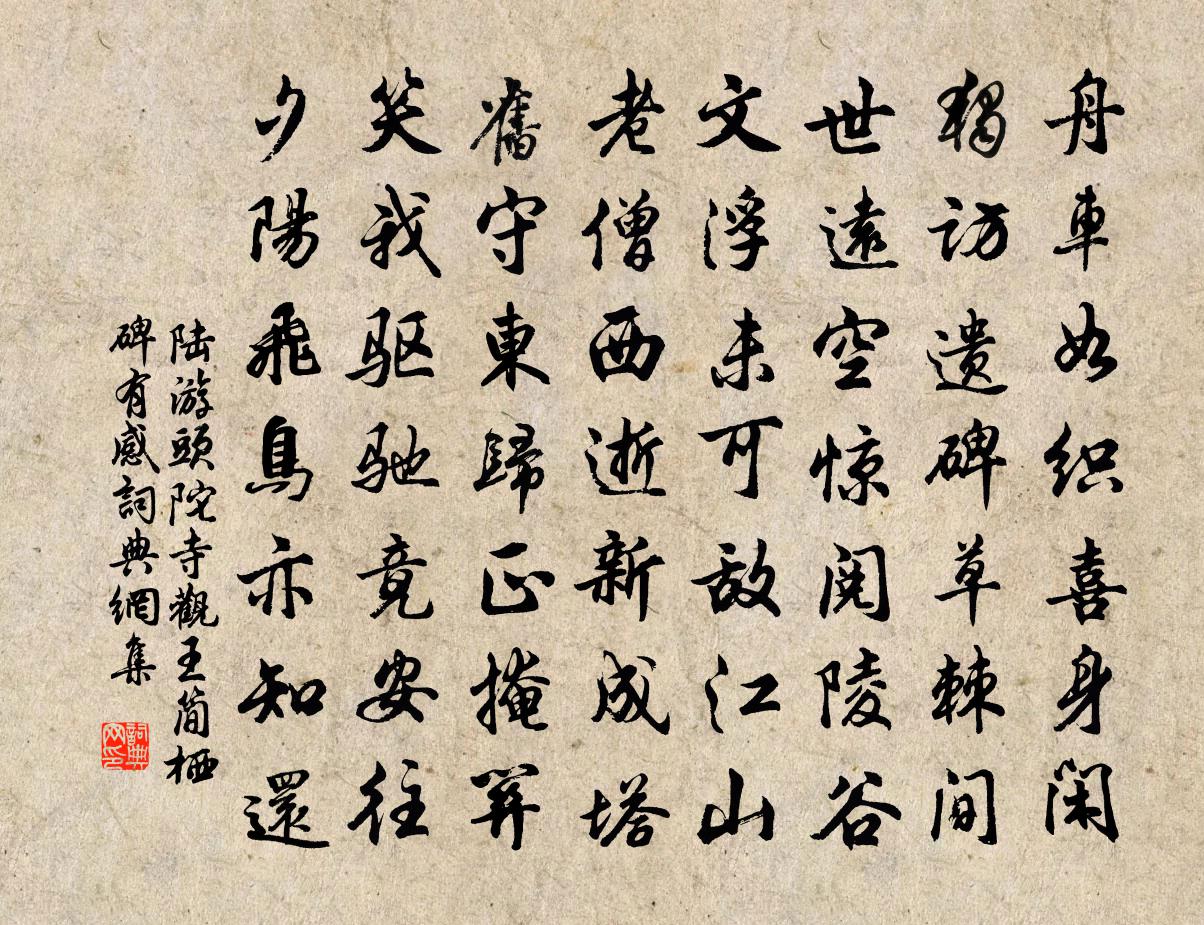 舟車如织喜身闲
獨访遗碑草棘间
世遠空惊阅陵谷
文浮未可敌江山
老僧西逝新成塔
舊守東歸正掩關
笑我驱驰竟安往
夕陽飛鳥亦知還
陆游頭陀寺觀王简栖
碑有感詞典網集
詞典
网印